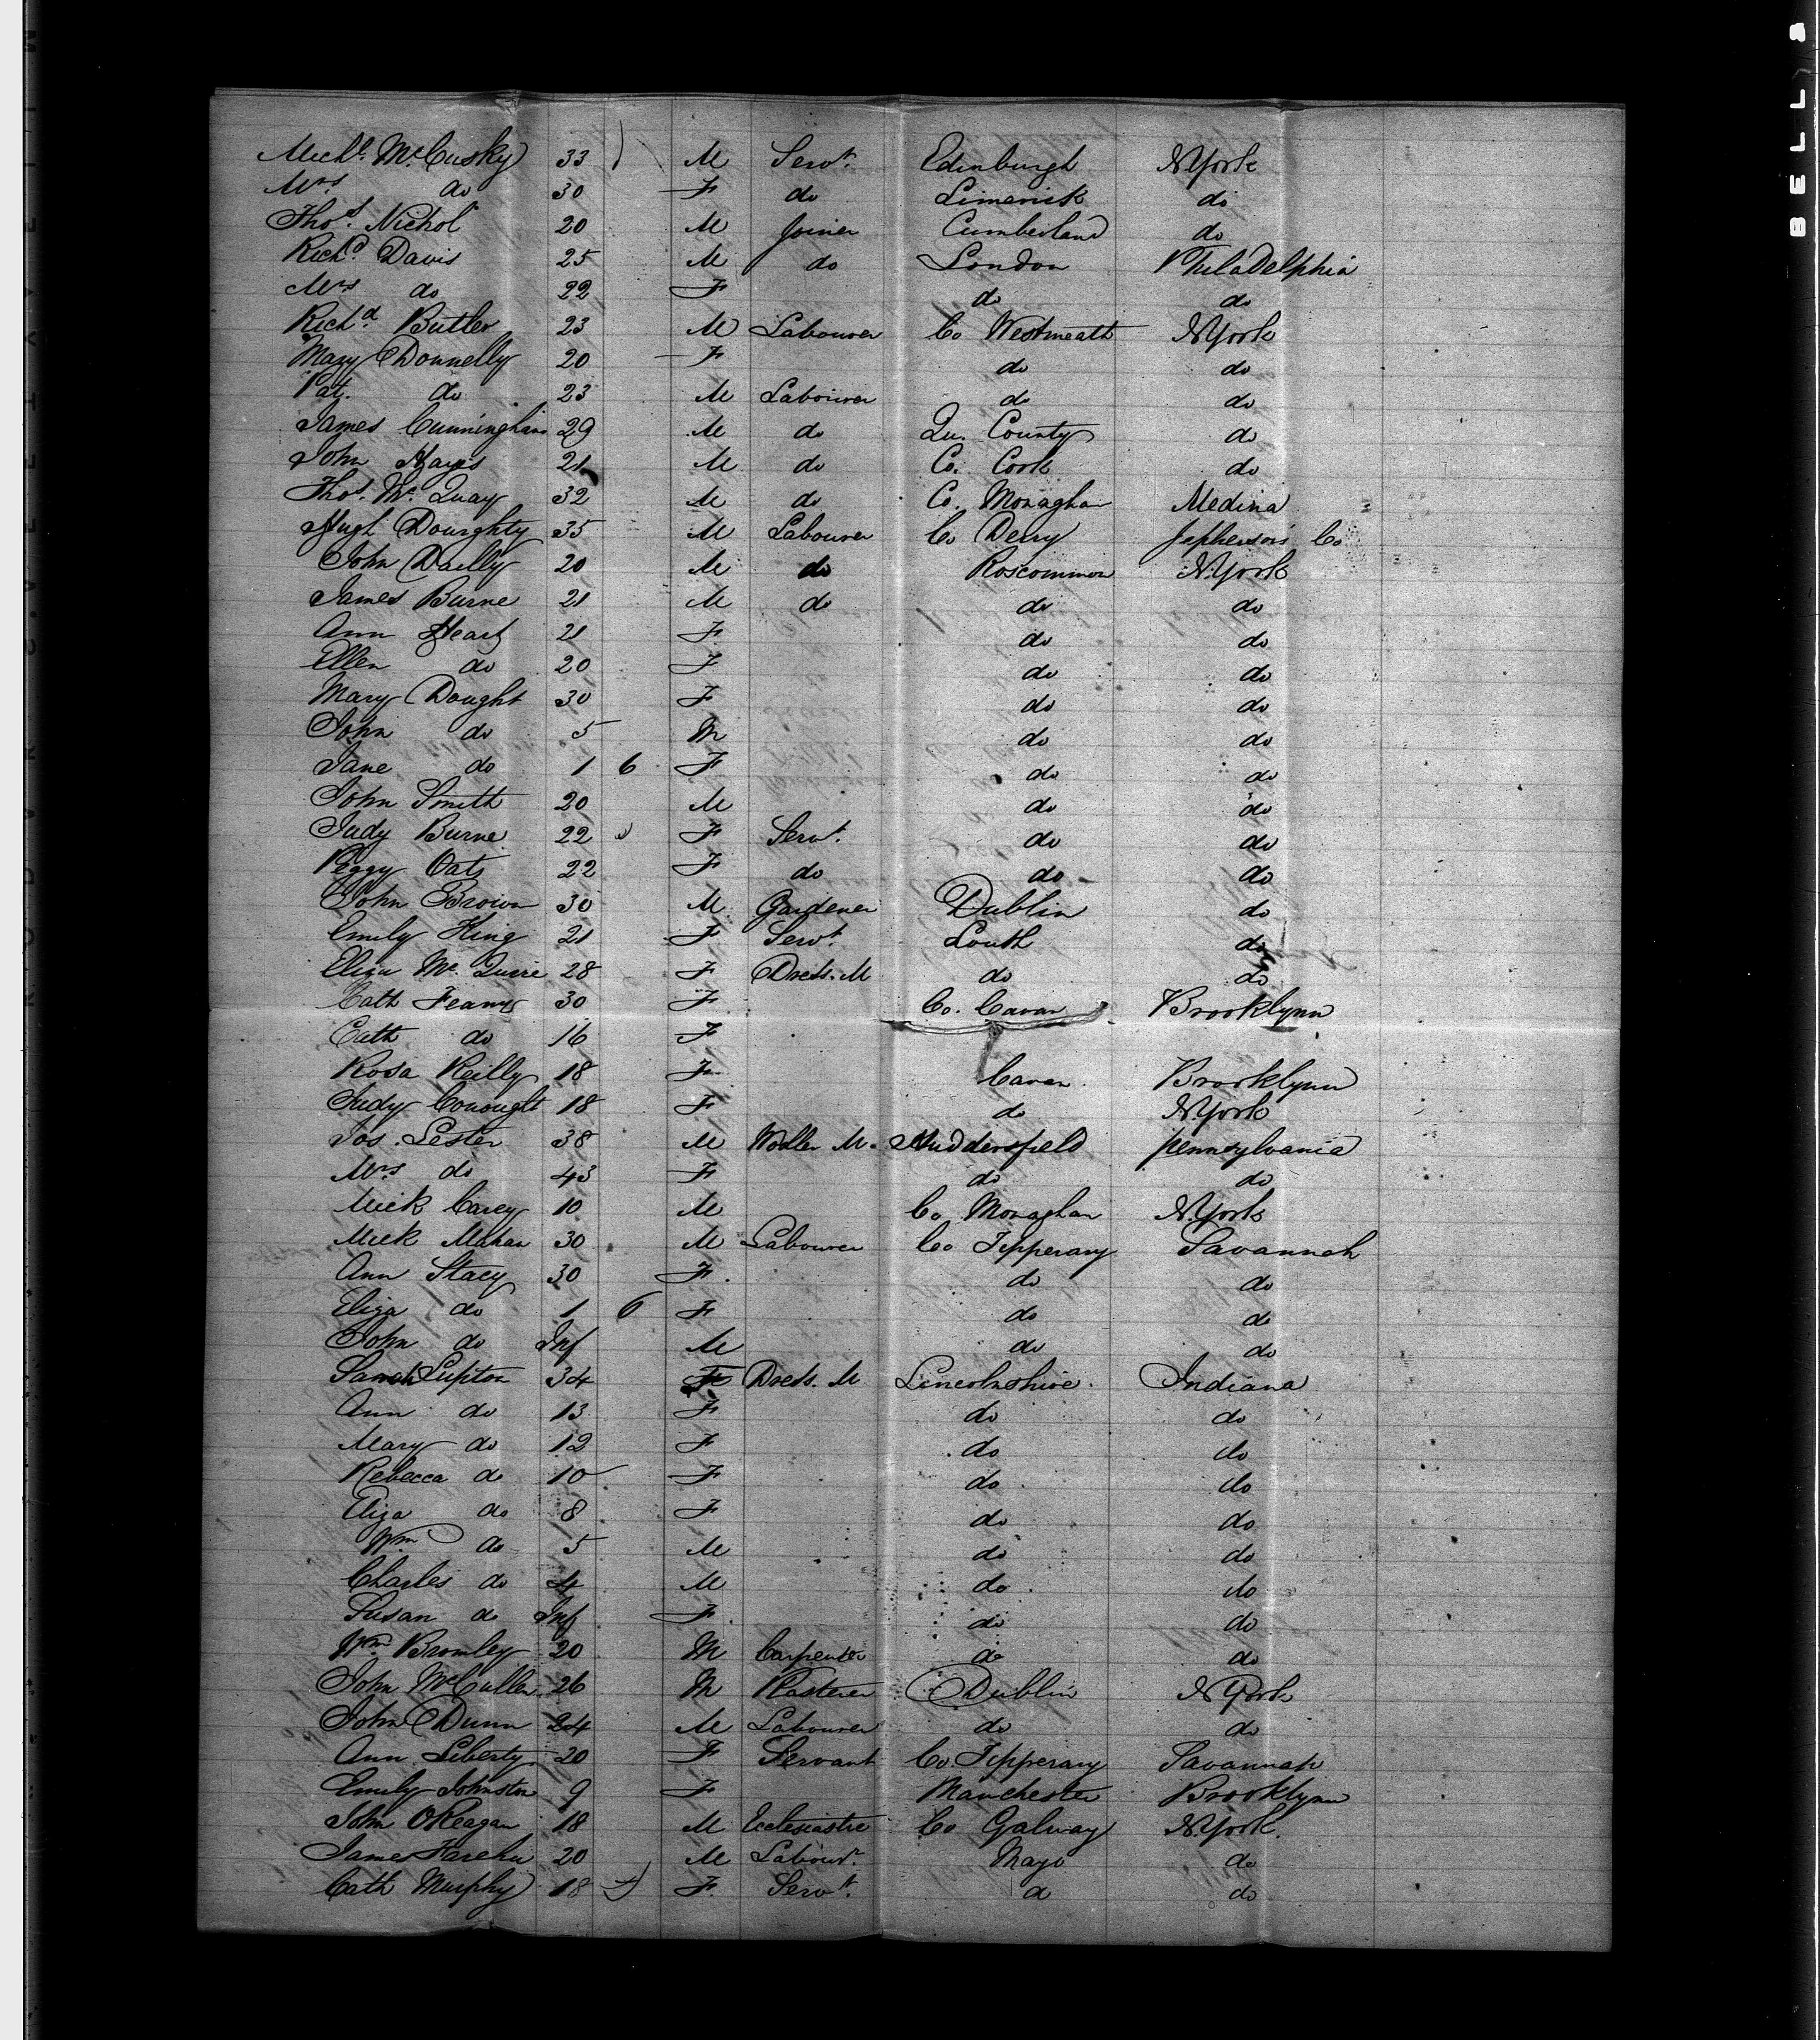 Michl. McCusky 33 M Servt. Edinburgh NYork
Mrs do 30 F do Limerick do
Thos. Nichol 20 M Joiner Cumberland do
Richd. Davis 25 M do London Philadelphia
Mrs do 22 F do do
Richd. Butler 23 M Labourer Co Westmeath NYork
Mary Donnelly 20 F do do
Pat. do 23 M Labourer do do
James Cunningham 29 M do Qu. County do
John Hayes 21 M do Co. Cork do
Thos. Mc.Quay 32 M do Co. Monaghan Medina
Hugh Doughty 35 M Labourer Co Derry Jepherson's Co
John Dailly 20 M do Roscommon N.York
James Burne 21 M do do do
Ann 21 F do do
Ellen do 20 F do do
Mary Dought 30 F do do
John do 5 M do do
Jane do 1 6 F do do
John Smith 20 M do do
Judy Burne 22 F Servt. do do
Peggy Oats 22 F do do do
John Brown 30 M Gardener Dublin do
Emily King 21 F Servt. Louth do
Eliza Mc. Quire 28 F Dress. M do do
Cath 30 F Co. Cavan Brooklynn
Cath do 16 F
Rosa Reilly 18 F Cavan Brooklynn
Judy Conought 18 F do N.York
Jos. Lester 38 M Woller M. Huddersfield pennsylvania
Mrs do 43 F do do
Mick Carey 10 M Co Monaghan N.York
Mick Mahan 30 M Labourer Co Tipperary Savannah
Ann Stacy 30 F. do do
Eliza do 1 6 F do do
John do Inf M do do
Sarah Lupton 34 F Dress. M Lincolnshire. Indiana
Ann do 13 F do do
Mary do 12 F do do
Rebecca do 10 F do do
Eliza do 8 F do do
Wm do 5 M do do
Charles do 4 M do do
Susan do Inf F. do do
Wm Bromley 20 M Carpenter do do
John McCullen 26 M Plasterer Dublin NYork
John Dunn 24 M Labourer do do
Ann Liberty 20 F Servant Co. Tipperary Savannah
Emily Johnston 9 F Manchester Brooklynn
John OReagan 18 M Co Galway N.York.
James 20 M Labourr. Mayo do
Cath Murphy 18 F. Servt. d do
BELL